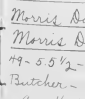 Morris Da
Morris D
49 - 5.5½ -
Butcher -